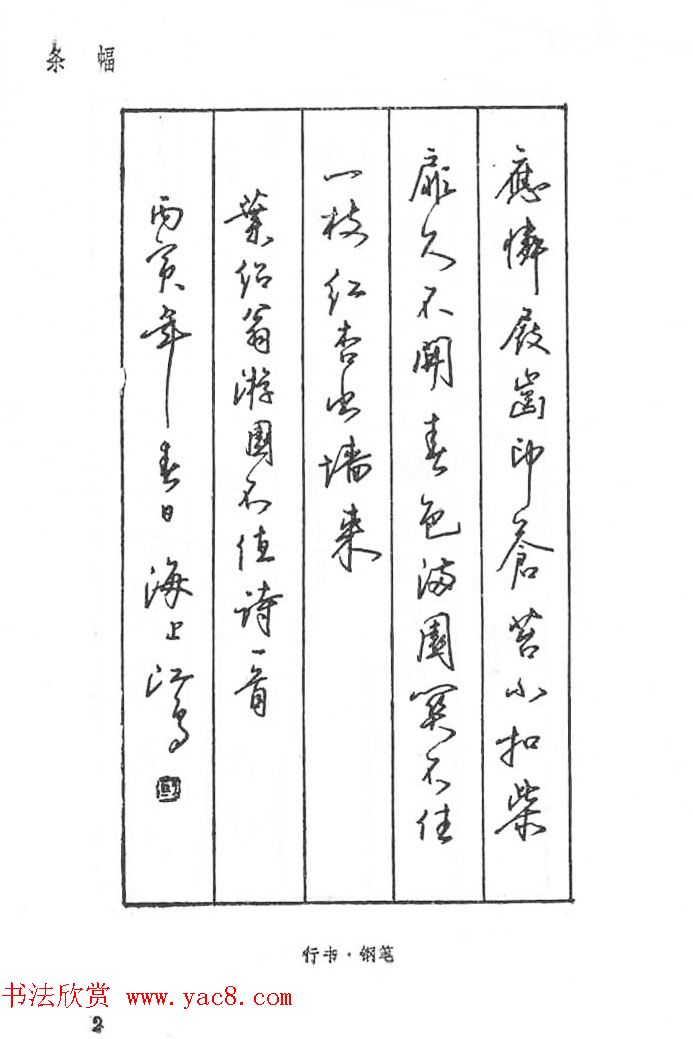 条幅
應憐屐齒印蒼苔小扣柴
扉久不開春色滿園関不住
一枝红杏出墙來
葉绍翁游園不值詩一首
丙寅年春日海上江鸟
行书·钢笔
书法欣赏 www.yac8.com
2